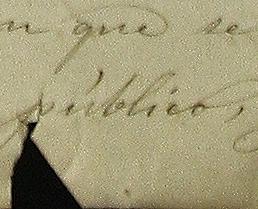 que se
público,